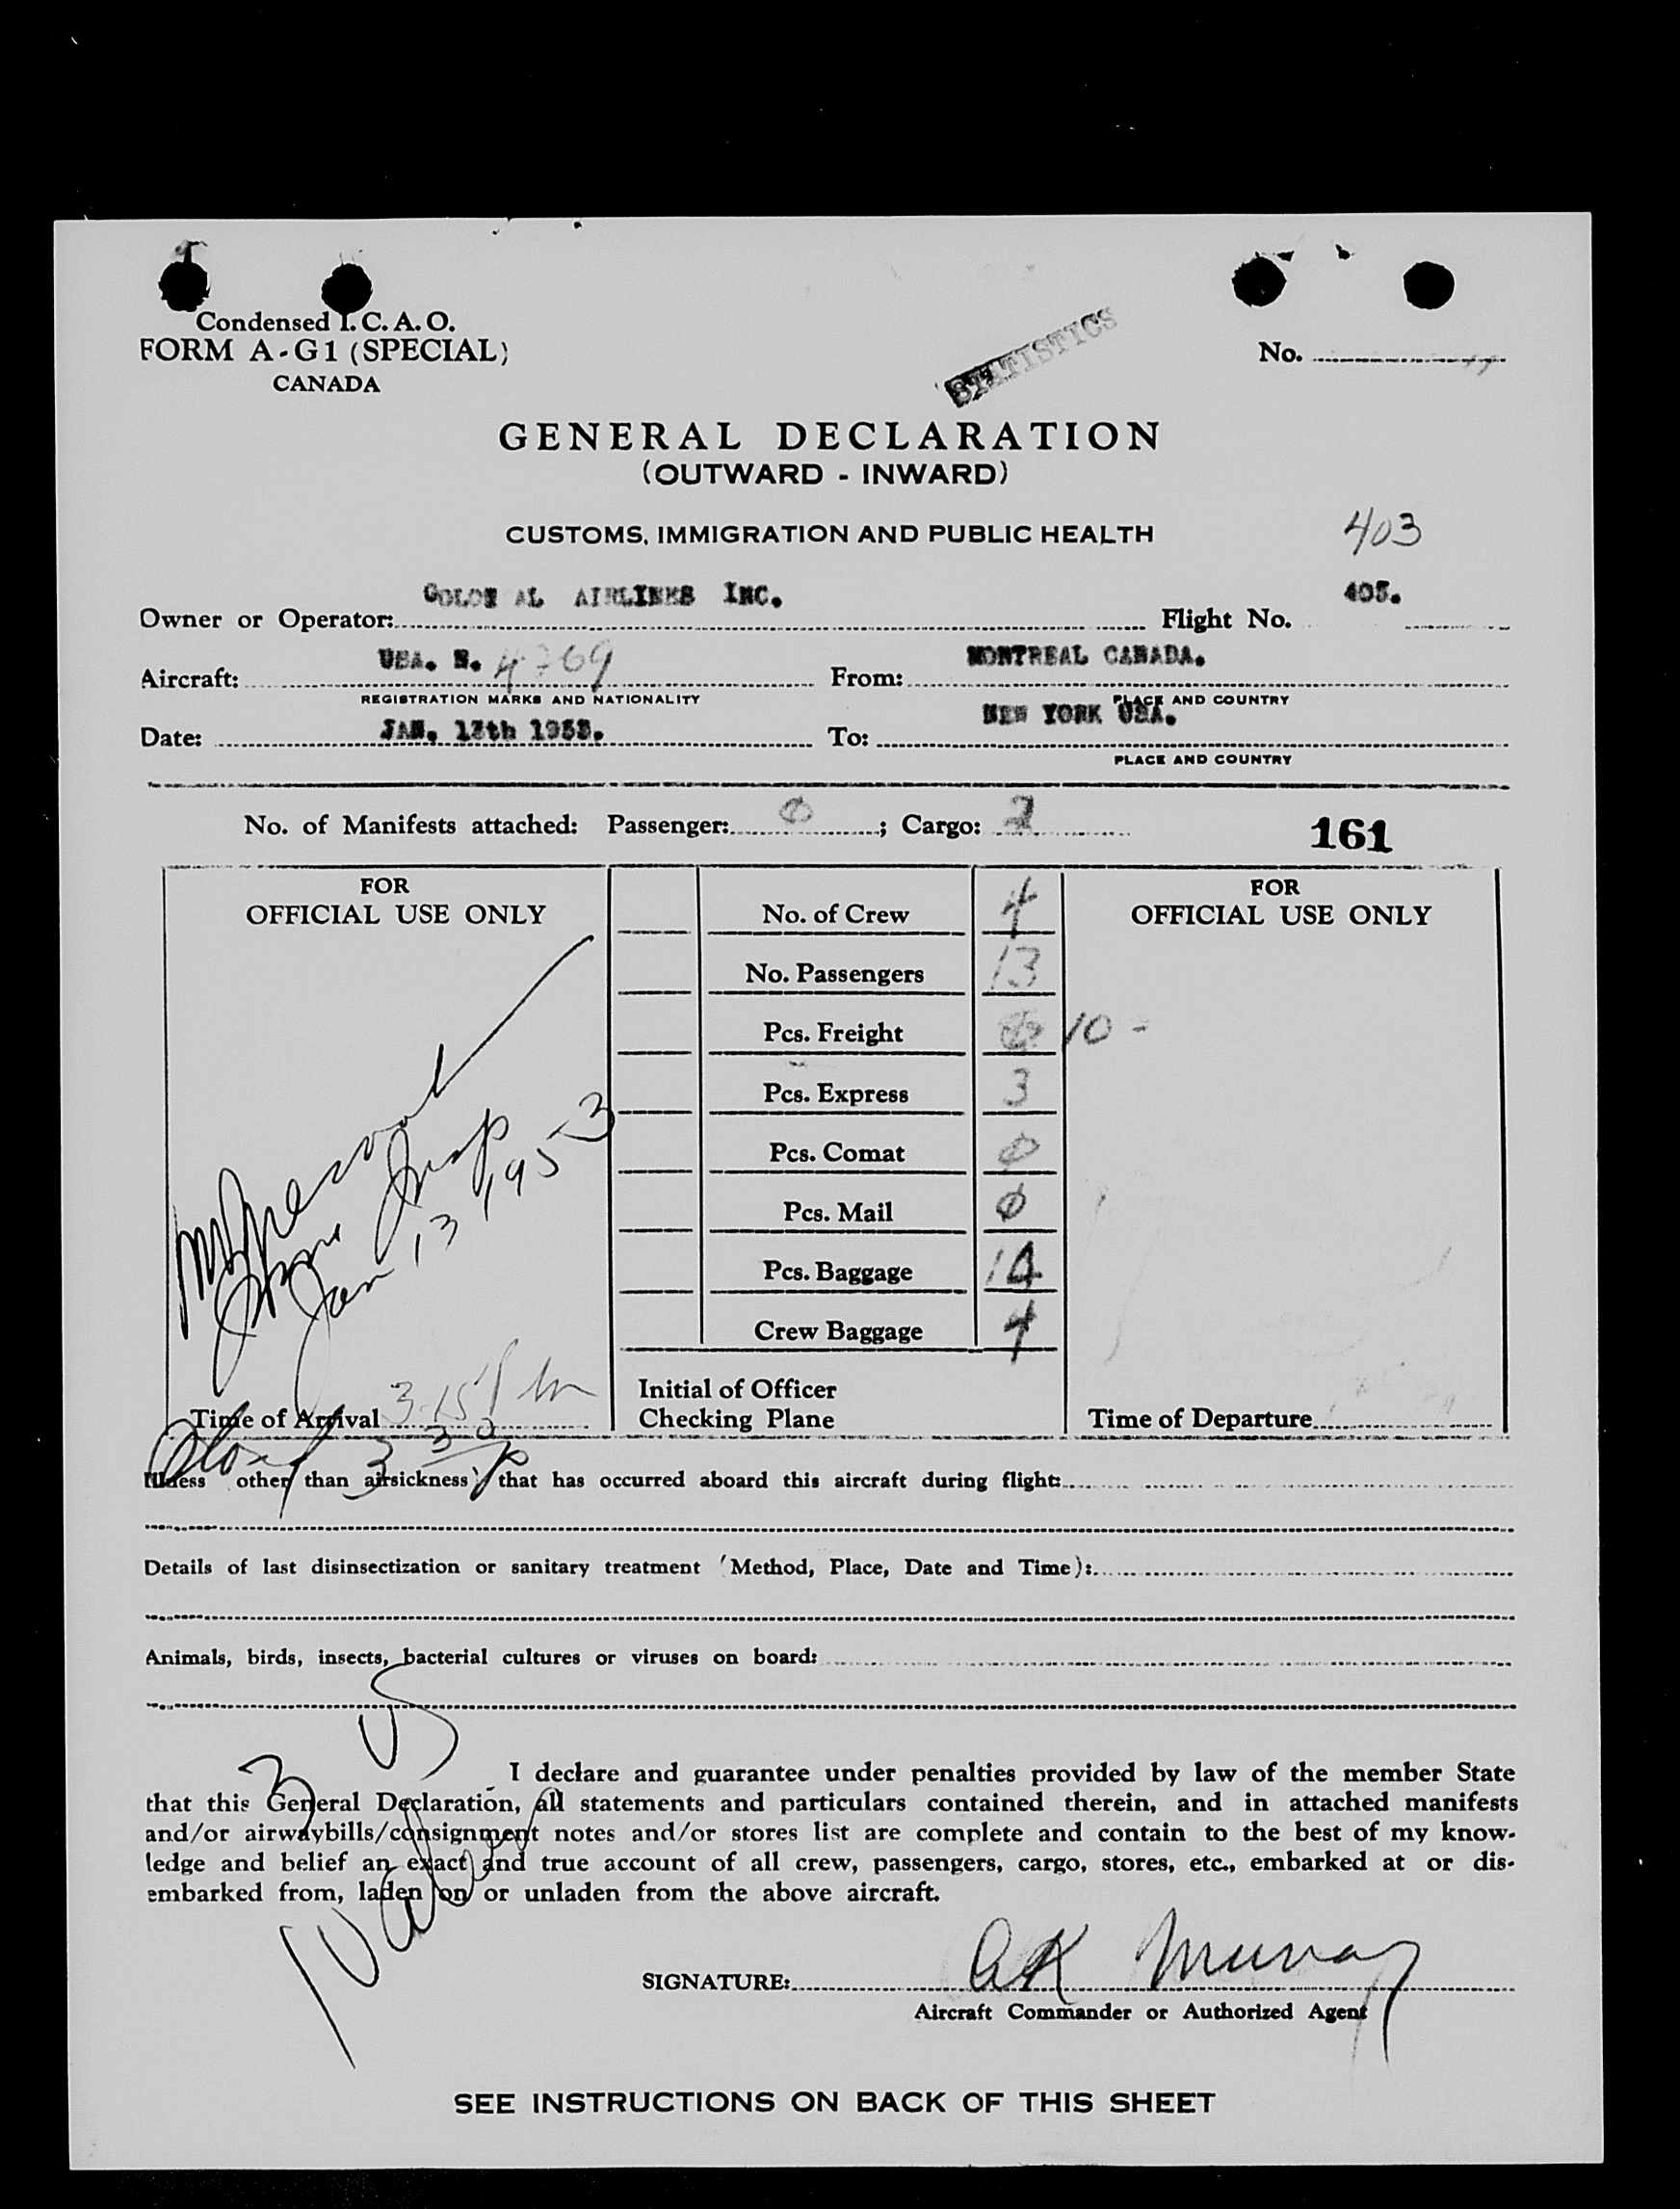 Condensed I. C. A. O.
FORM A-G1 (SPECIAL)
CANADA
STATISTICS
No.
GENERAL DECLARATION
(OUTWARD - INWARD)
CUSTOMS, IMMIGRATION AND PUBLIC HEALTH
403
Owner or Operator: COLON AL AIRLINES INC. Flight No. 405.
Aircraft: USA. N. 4269 From: MONTREAL CANADA.
REGISTRATION MARKS AND NATIONALITY PLACE AND COUNTRY
Date: JAN. 13th 1953. To: NEW YORK USA.
PLACE AND COUNTRY
No. of Manifests attached: Passenger: 0 ; Cargo: 2
161
FOR
OFFICIAL USE ONLY
Imm Insp
Jan 13 1953
Time of Arrival 3-15 Pm
No. of Crew 4
No. Passengers 13
Pcs. Freight 10 -
Pcs. Express 3
Pcs. Comat 0
Pcs. Mail 0
Pcs. Baggage 14
Crew Baggage 4
Initial of Officer
Checking Plane
FOR
OFFICIAL USE ONLY
Time of Departure
3 30 p
Illness other than airsickness that has occurred aboard this aircraft during flight:
Details of last disinsectization or sanitary treatment (Method, Place, Date and Time):
Animals, birds, insects, bacterial cultures or viruses on board:
3 US
I declare and guarantee under penalties provided by law of the member State
that this General Declaration, all statements and particulars contained therein, and in attached manifests
and/or airwaybills/consignment notes and/or stores list are complete and contain to the best of my know-
ledge and belief an exact and true account of all crew, passengers, cargo, stores, etc., embarked at or dis-
embarked from, laden on or unladen from the above aircraft.
SIGNATURE: AK Murray
Aircraft Commander or Authorized Agent
SEE INSTRUCTIONS ON BACK OF THIS SHEET